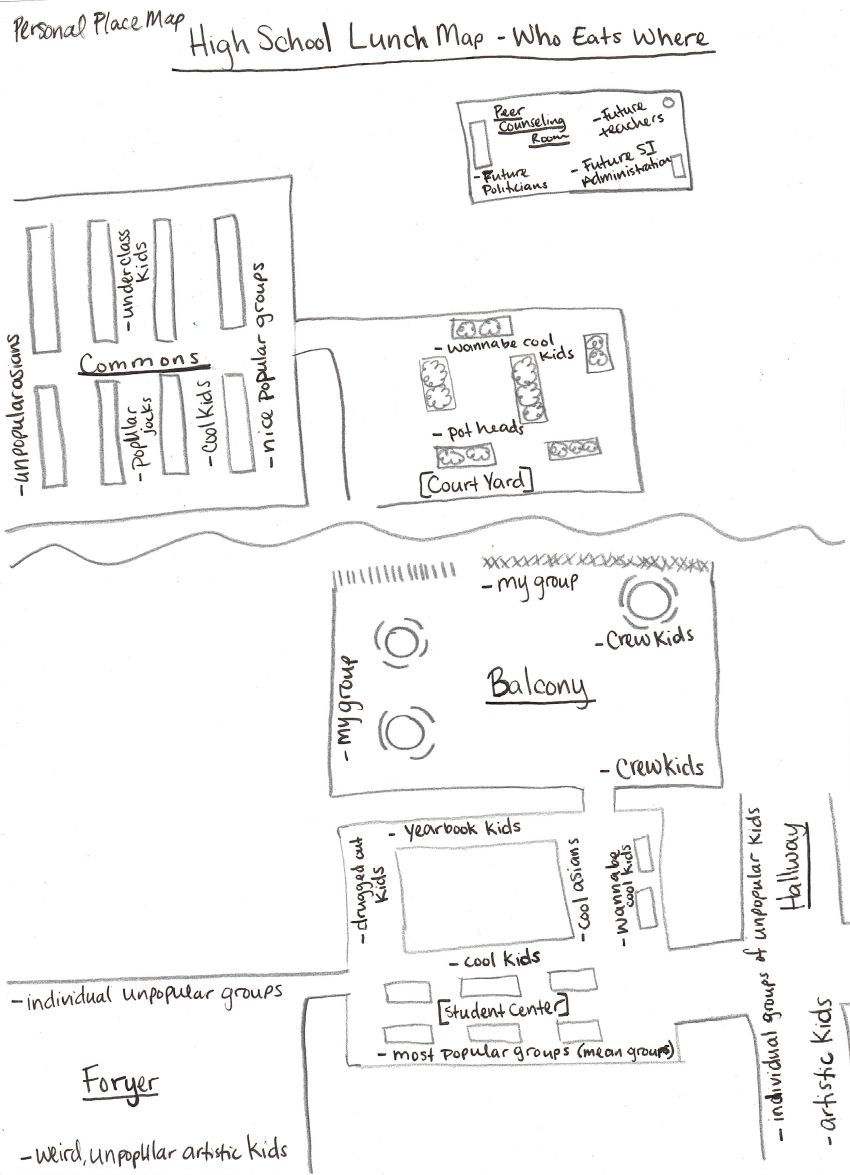 Personal Place Map
High School Lunch Map - Who Eats Where
Peer
Counseling
Room
- Future
teachers
- Future
Politicians
- Future SI
Administration
- unpopular asians
- underclass
Kids
- nice popular groups
Commons
- Popular
jocks
- Cool Kids
- wannabe cool
kids
- pot heads
[Court Yard]
- my group
- Crew Kids
- my group
Balcony
- Crew Kids
- yearbook kids
- drugged out
Kids
- cool asians
- wannabe
cool kids
- individual groups of unpopular kids
Hallway
- artistic Kids
- cool kids
[Student Center]
- most popular groups (mean groups)
- individual unpopular groups
Foryer
- weird, unpopular artistic kids